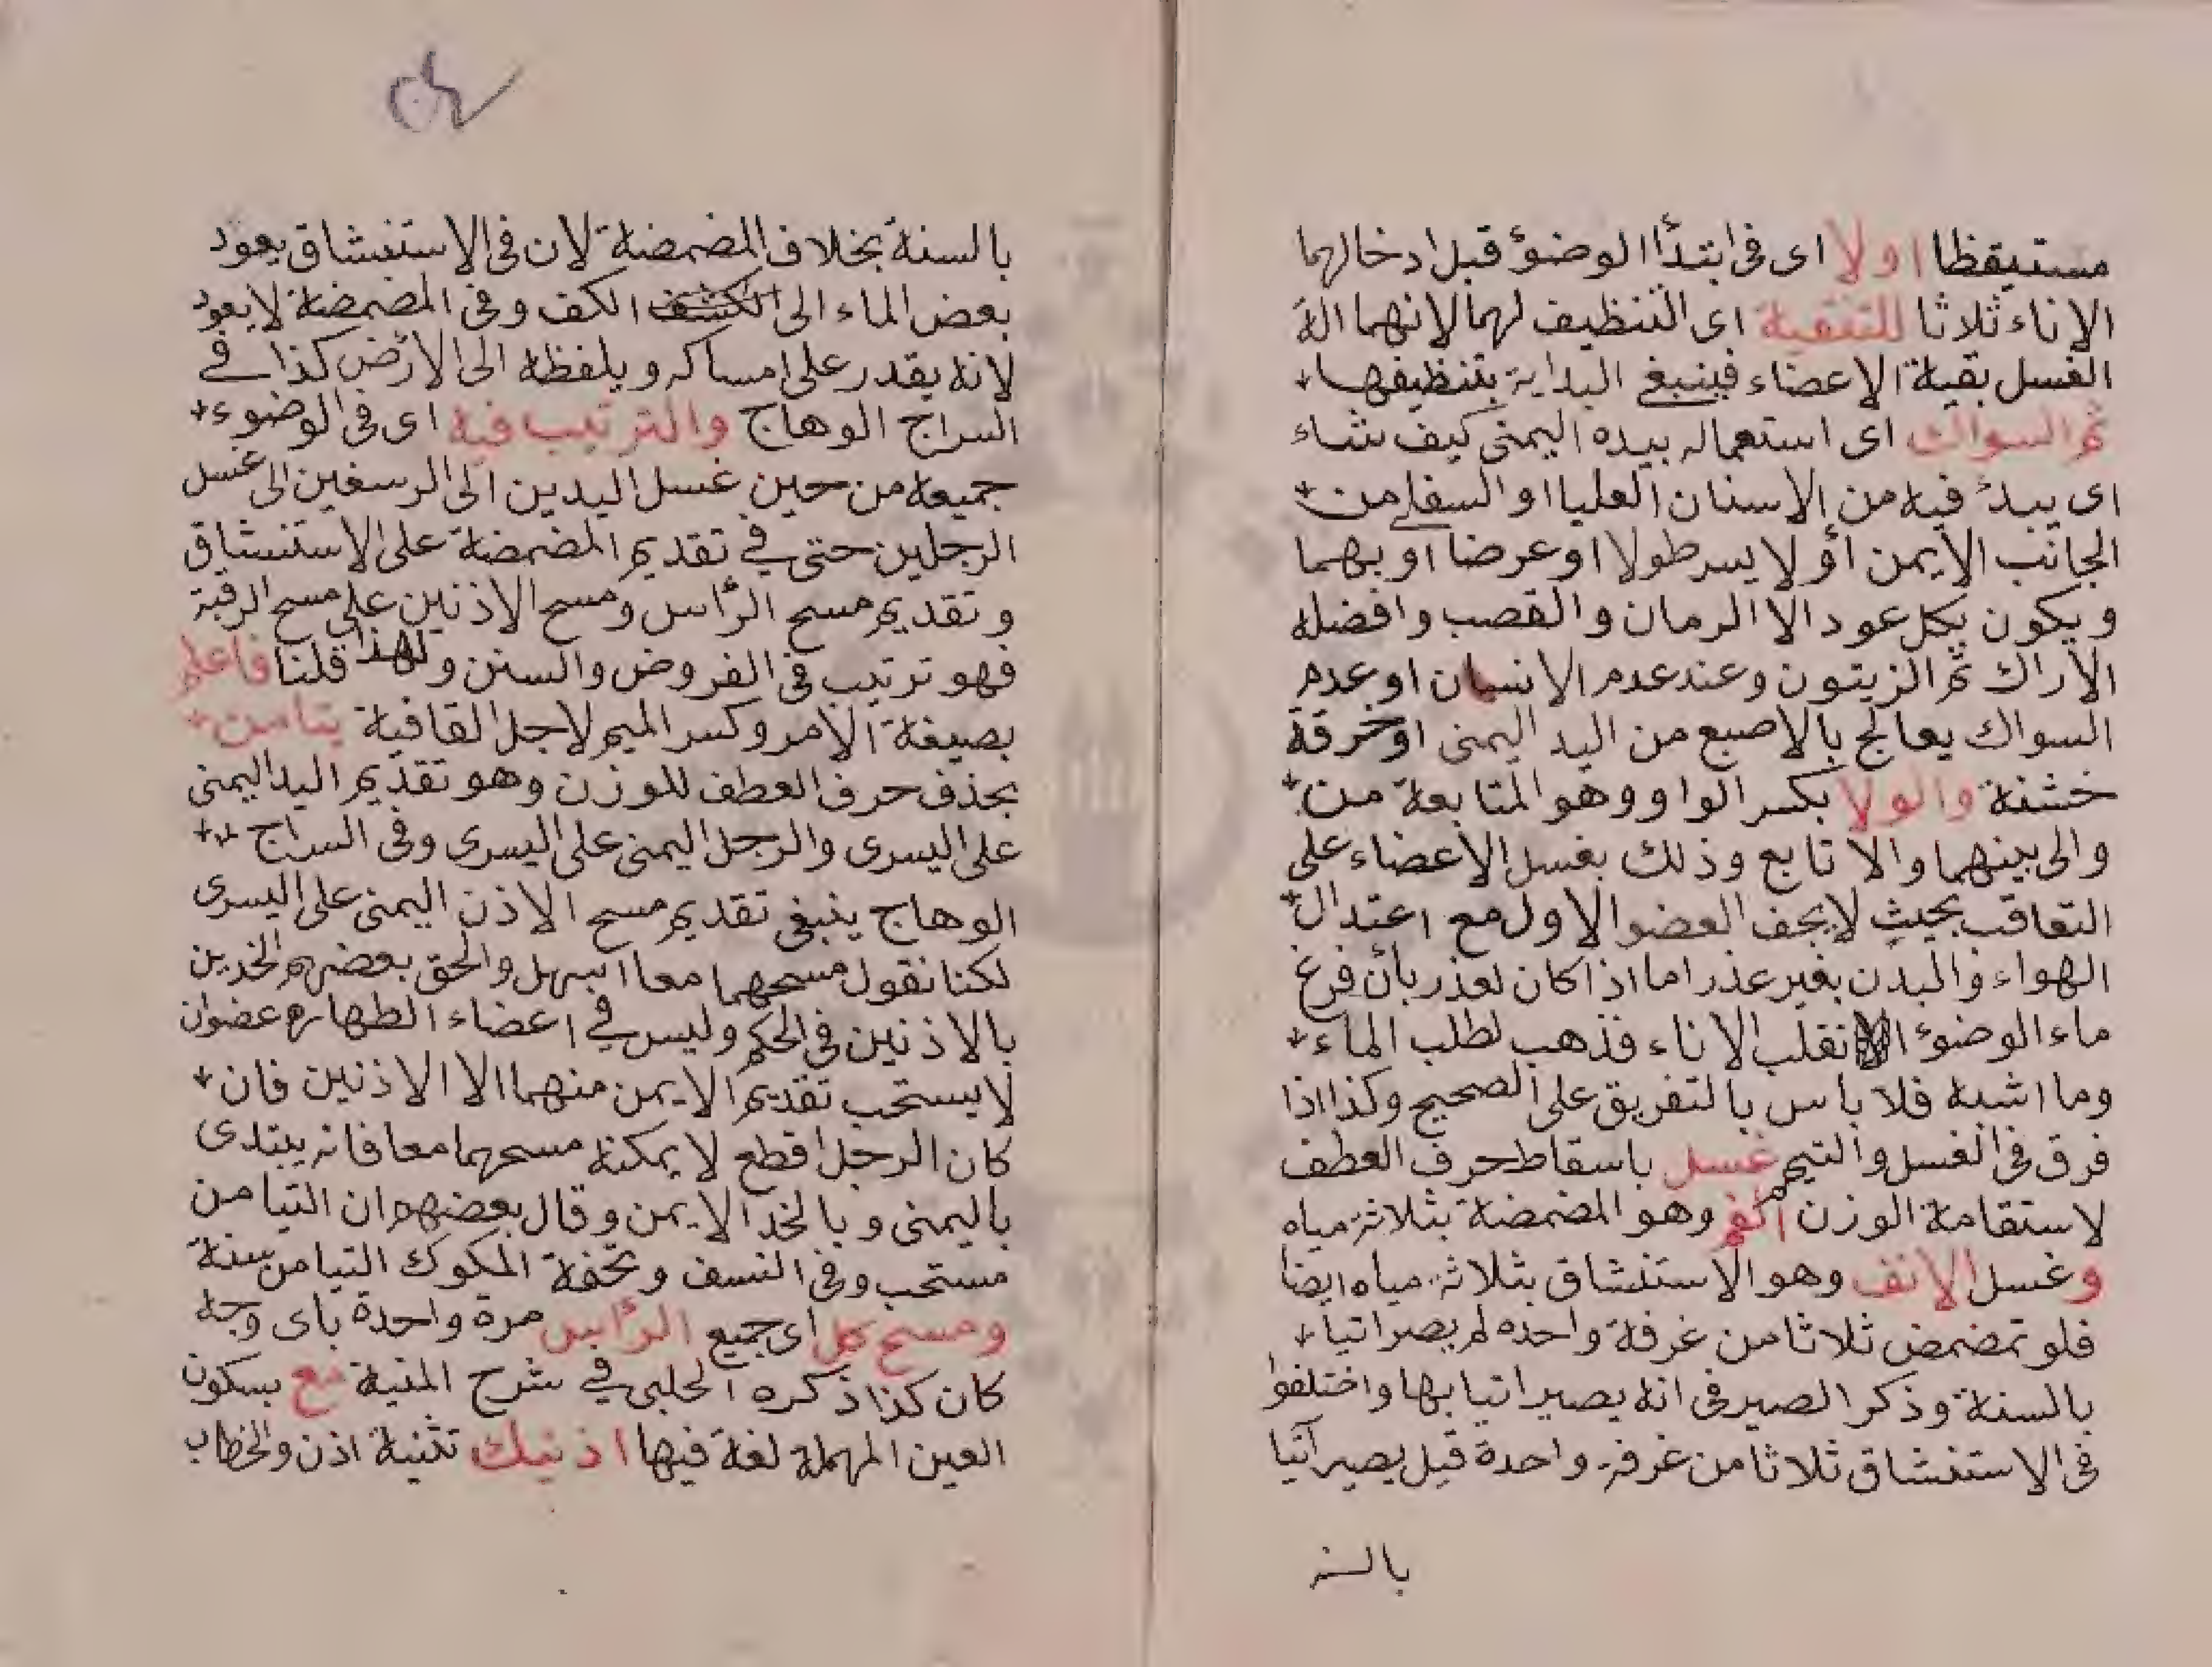 مستيقظا اولا اى فى ابتدأ الوضوٴ قبل ادخالهما
الاناء ثلاثا للتنقية اى التنظيف لهما لانهما الة
الغسل بقية الاعضاء فينبغى البداية بتنظيفها
ثم السواك اى استعماله بيده اليمنى كيف شاء
اى يبدٴ فيه من الاسنان العليا او السفلى من
الجانب الايمن أو لا يسر طولا او عرضا او بهما
ويكون بكل عود الا الرمان والقصب وافضله
الاراك ثم الزيتون وعند عدم الانسان او عدم
السواك يعالج بالاصبع من اليد اليمنى اوخرقة
خشنة والولا بكسر الواو وهو المتابعة من
والى بينهما والا تابع وذلك بغسل الاعضاء على
التعاقب بحيث لايجف العضو الاول مع اعتدال
الهواء والبدن بغير عذر اما اذا كان لعذر بأن فرغ
ماء الوضوٴ انقلب الاناء فذهب لطلب الماء
وما اشبه فلا باس بالتفريق على الصحيح وكذا اذا
فرق فى الغسل والتيمم غسل باسقاط حرف العطف
لاستقامة الوزن الفم وهو المضمضة بثلاثة مياه
وغسل الانف وهو الاستنشاق بثلاثة مياه ايضا
فلو تمضمض ثلاثا من غرفة واحده لم يصر اتيا
بالسنة وذكر الصيرفى انه يصير اتيا بها واختلفوا
فى الاستنشاق ثلاثا من غرفة واحدة قيل يصير آتيا
بالسنة
بالسنة بخلاف المضمضة لان فى الاستنشاق يعود
بعض الماء الى الكشف الكف وفى المضمضة لا يعود
لانه يقدر على امساكه ويلفظه الى الارض كذا فى
السراج الوهاج والترتيب فيه اى فى الوضوء
جميعه من حين غسل اليدين الى الرسغين الى غسل
الرجلين حتى فى تقديم المضمضة على الاستنشاق
وتقديم مسح الرأس ومسح الاذنين على مسح الرقبة
فهو ترتيب فى الفروض والسنن ولهذا قلنا فاعلم
بصيغة الامر وكسر الميم لاجل القافية يتامن
بحذف حرف العطف للوزن وهو تقديم اليد اليمنى
على اليسرى والرجل اليمنى على اليسرى وفى السراج
الوهاج ينبغى تقديم مسح الاذن اليمنى على اليسرى
لكنا نقول مسحهما معا اسهل والحق بعضهم الخدين
بالاذنين فى الحكم وليس فى اعضاء الطهارة عضوان
لا يستحب تقديم الايمن منهما الا الاذنين فان
كان الرجل اقطع لا يمكنه مسحهما معا فانه يبتدى
باليمنى وبالخد الايمن وقال بعضهم ان التيامن
مستحب وفى النسف وتحفة الملوك التيامن سنة
ومسح كل اى جميع الرأس مرة واحدة باى وجه
كان كذا ذكره الحلبى فى شرح المنية مع بسكون
العين المهملة لغة فيها اذنيك تثنية اذن والخطاب